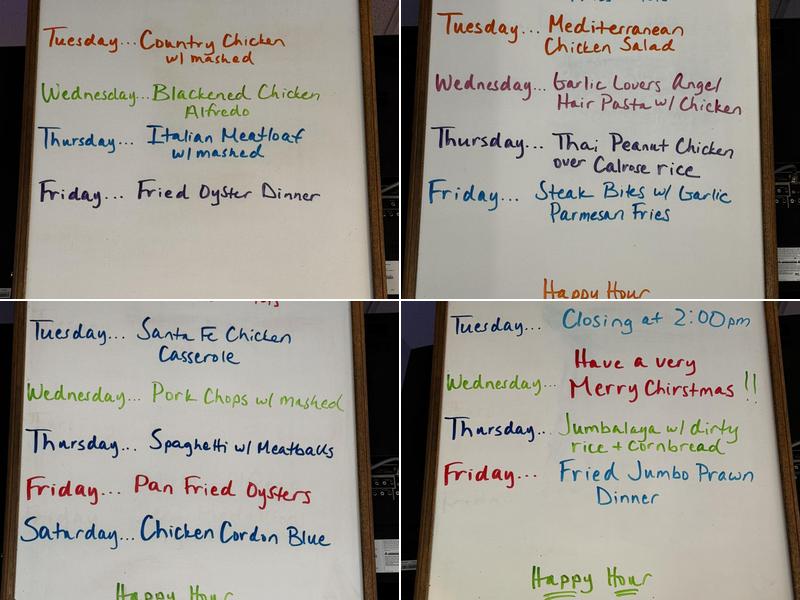 Tuesday... Country Chicken
w/ mashed
Wednesday... Blackened Chicken
Alfredo
Thursday... Italian Meatloaf
w/ mashed
Friday... Fried Oyster Dinner
Tuesday... Mediterranean
Chicken Salad
Wednesday... Garlic Lovers Angel
Hair Pasta w/ Chicken
Thursday... Thai Peanut Chicken
over Calrose rice
Friday... Steak Bites w/ Garlic
Parmesan Fries
Happy Hour
Tuesday... Santa Fe Chicken
Casserole
Wednesday... Pork Chops w/ mashed
Thursday... Spaghetti w/ Meatballs
Friday... Pan Fried Oysters
Saturday... Chicken Cordon Blue
Happy Hour
Tuesday... Closing at 2:00pm
Have a very
Wednesday... Merry Chirstmas !!
Thursday... Jumbalaya w/ dirty
rice + cornbread
Friday... Fried Jumbo Prawn
Dinner
Happy Hour